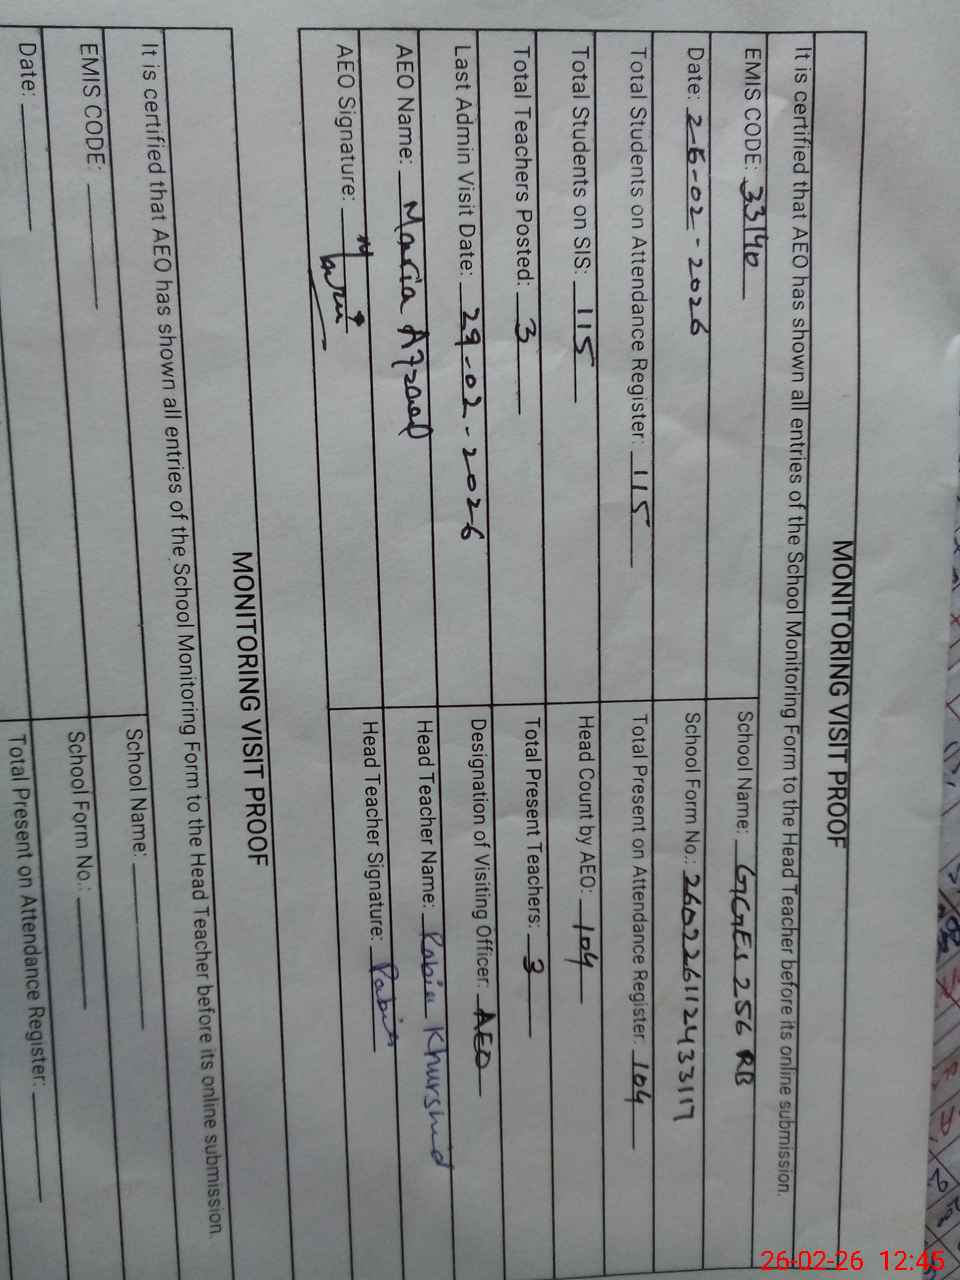 MONITORING VISIT PROOF
It is certified that AEO has shown all entries of the School Monitoring Form to the Head Teacher before its online submission.
EMIS CODE: 33140 School Name: GGES 256 RB
Date: 26-02-2026 School Form No.: 260226112433117
Total Students on Attendance Register: 115 Total Present on Attendance Register: 104
Total Students on SIS: 115 Head Count by AEO: 104
Total Teachers Posted: 3 Total Present Teachers: 3
Last Admin Visit Date: 29-02-2026 Designation of Visiting Officer: AEO
AEO Name: Maria Afzaal Head Teacher Name: Rabia Khurshid
AEO Signature: Head Teacher Signature: Rabia
MONITORING VISIT PROOF
It is certified that AEO has shown all entries of the School Monitoring Form to the Head Teacher before its online submission.
EMIS CODE: School Name:
Date: School Form No.:
Total Present on Attendance Register:
26-02-26 12:45